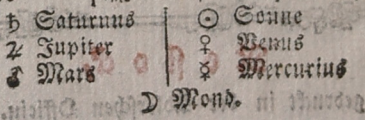 ♄ Saturnus
♃ Jupiter
♂ Mars
☉ Sonne
♀ Venus
☿ Mercurius
☽ Mond.